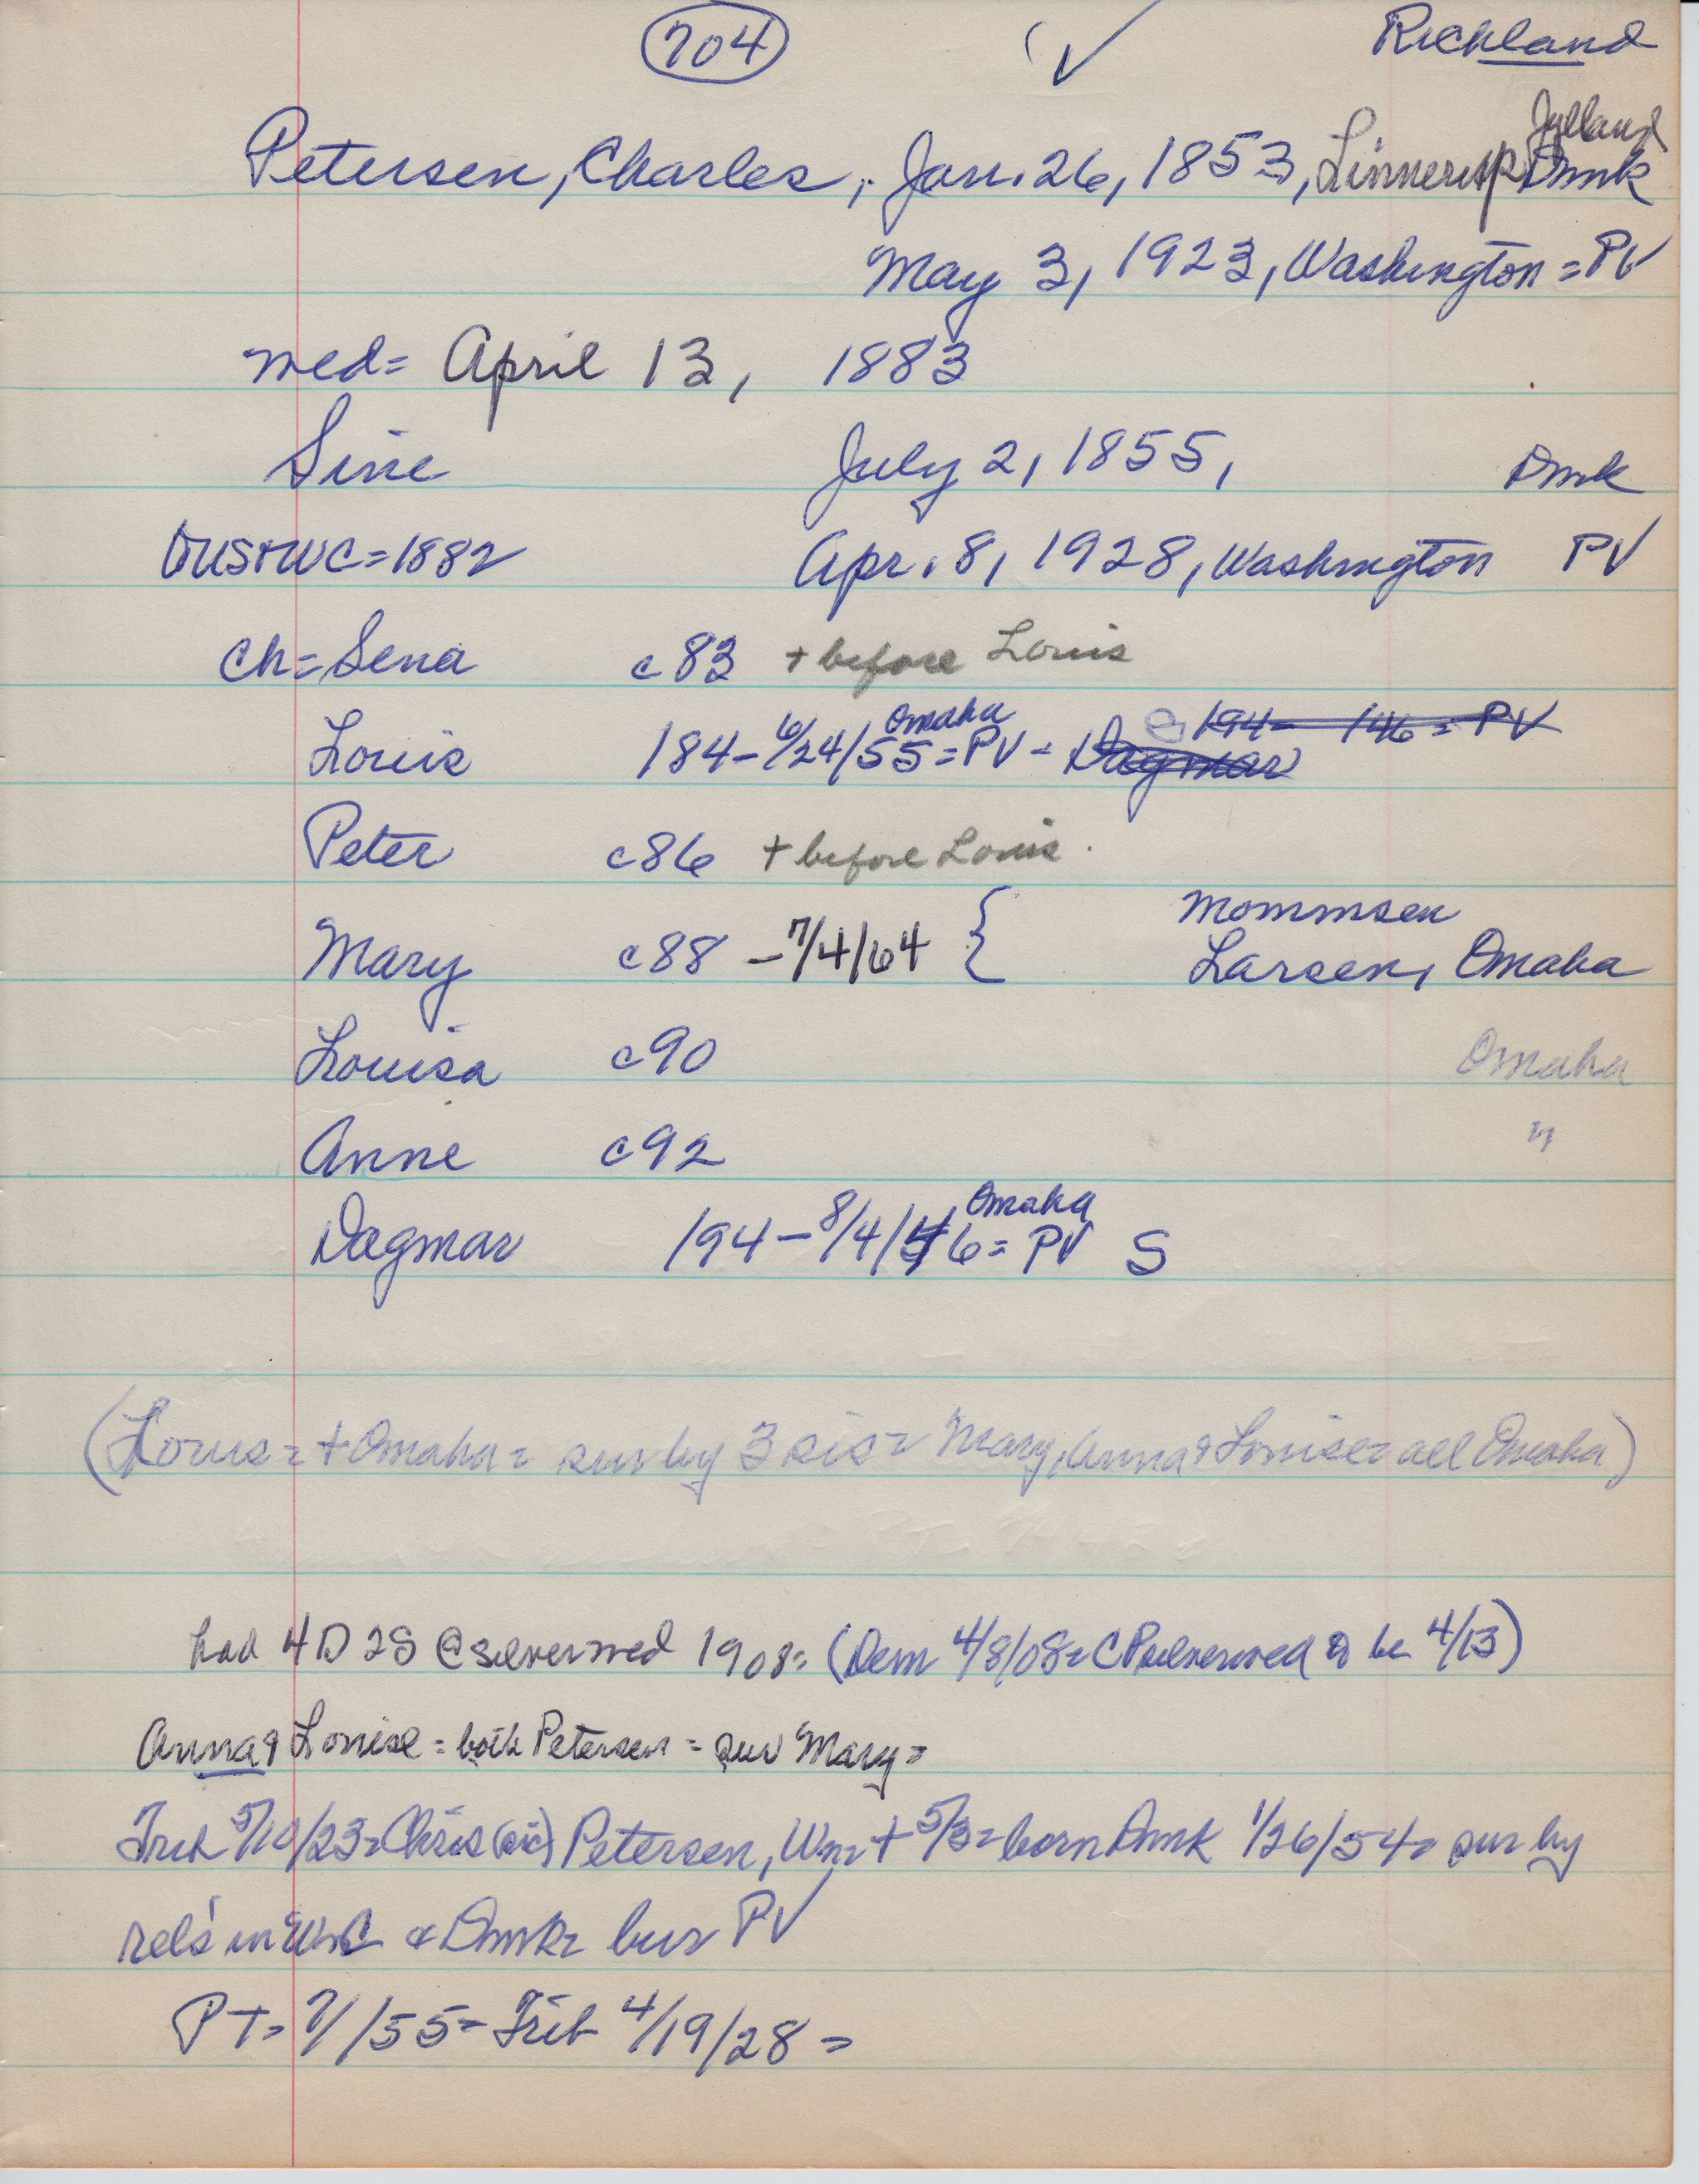 704 ✓ Richland
Jylland
Petersen, Charles, Jan. 26, 1853, Linnerup Dmk
May 3, 1923, Washington = PV
wed = April 13, 1883
Sine July 2, 1855, Dmk
toUS+WC=1882 Apr. 8, 1928, Washington PV
Ch = Sena c83 + before Louis
Louis 184-6/24/55 = Omaha PV - Dagmar 194- 146 = PV
Peter c86 + before Louis.
Mary c88 - 7/4/64 { Mommsen
Larsen, Omaha
Louisa c90 Omaha
Anne c92 "
Dagmar 194 - 8/4/46 = Omaha PV S
(Louis = + Omaha = sur by 3 sis = Mary, Anna & Louise = all Omaha)
had 4 D 2 S @ silver wed 1908 = (Dem 4/8/08 = CP silver wed to be 4/13)
Anna & Louise = both Petersen = sur Mary =
Trib 5/10/23 = Chris (sic) Petersen, Wn = + 5/3 = born Dmk 1/26/54 = sur by
rels in WC & Dmk = bur PV
PT = 7/ /55 = Trib 4/19/28 =